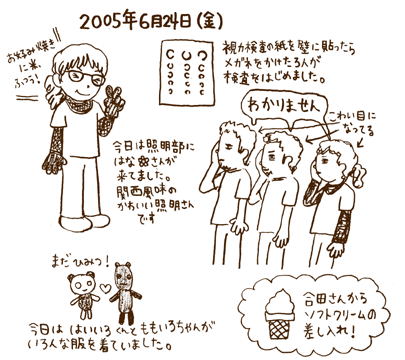 2005年6月24日(金)
お好み焼き
に米、
ふつう!
視力検査の紙を壁に貼ったら
メガネをかけた3人が
検査をはじめました。
わかりません
こわい目に
なってる
今日は照明部に
はな❀さんが
来てました。
関西風味の
かわいい照明さん
です
まだひみつ!
今日は はいいろくんとももいろちゃんが
いろんな服を着ていました。
合田さんから
ソフトクリームの
差し入れ!